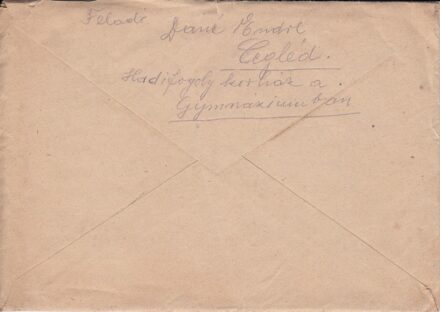 Feladó Dané Endre
Cegléd.
Hadifogoly korház a
Gymnáziumban